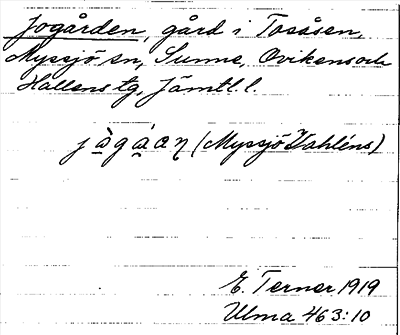 Jogården, gård i Tossåsen,
Myssjö sn, Sunne, Ovikens och
Hallens tg, Jämtl. l.
(Myssjö Wahléns)
E. Terner 1919
Ulma 463:10